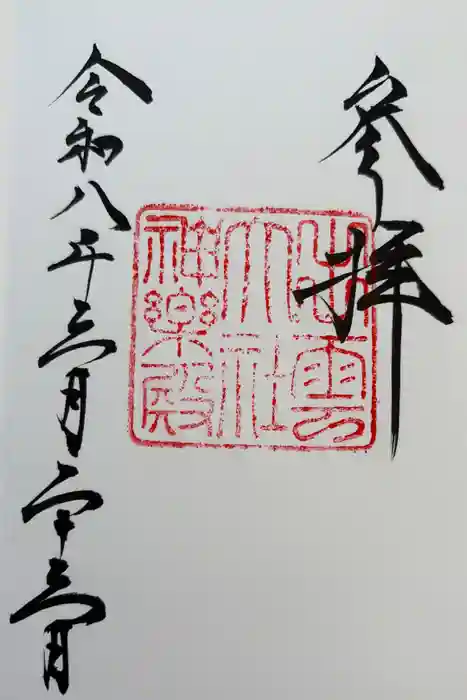 参拝
出雲
大社
神樂殿
令和八年三月二十三日